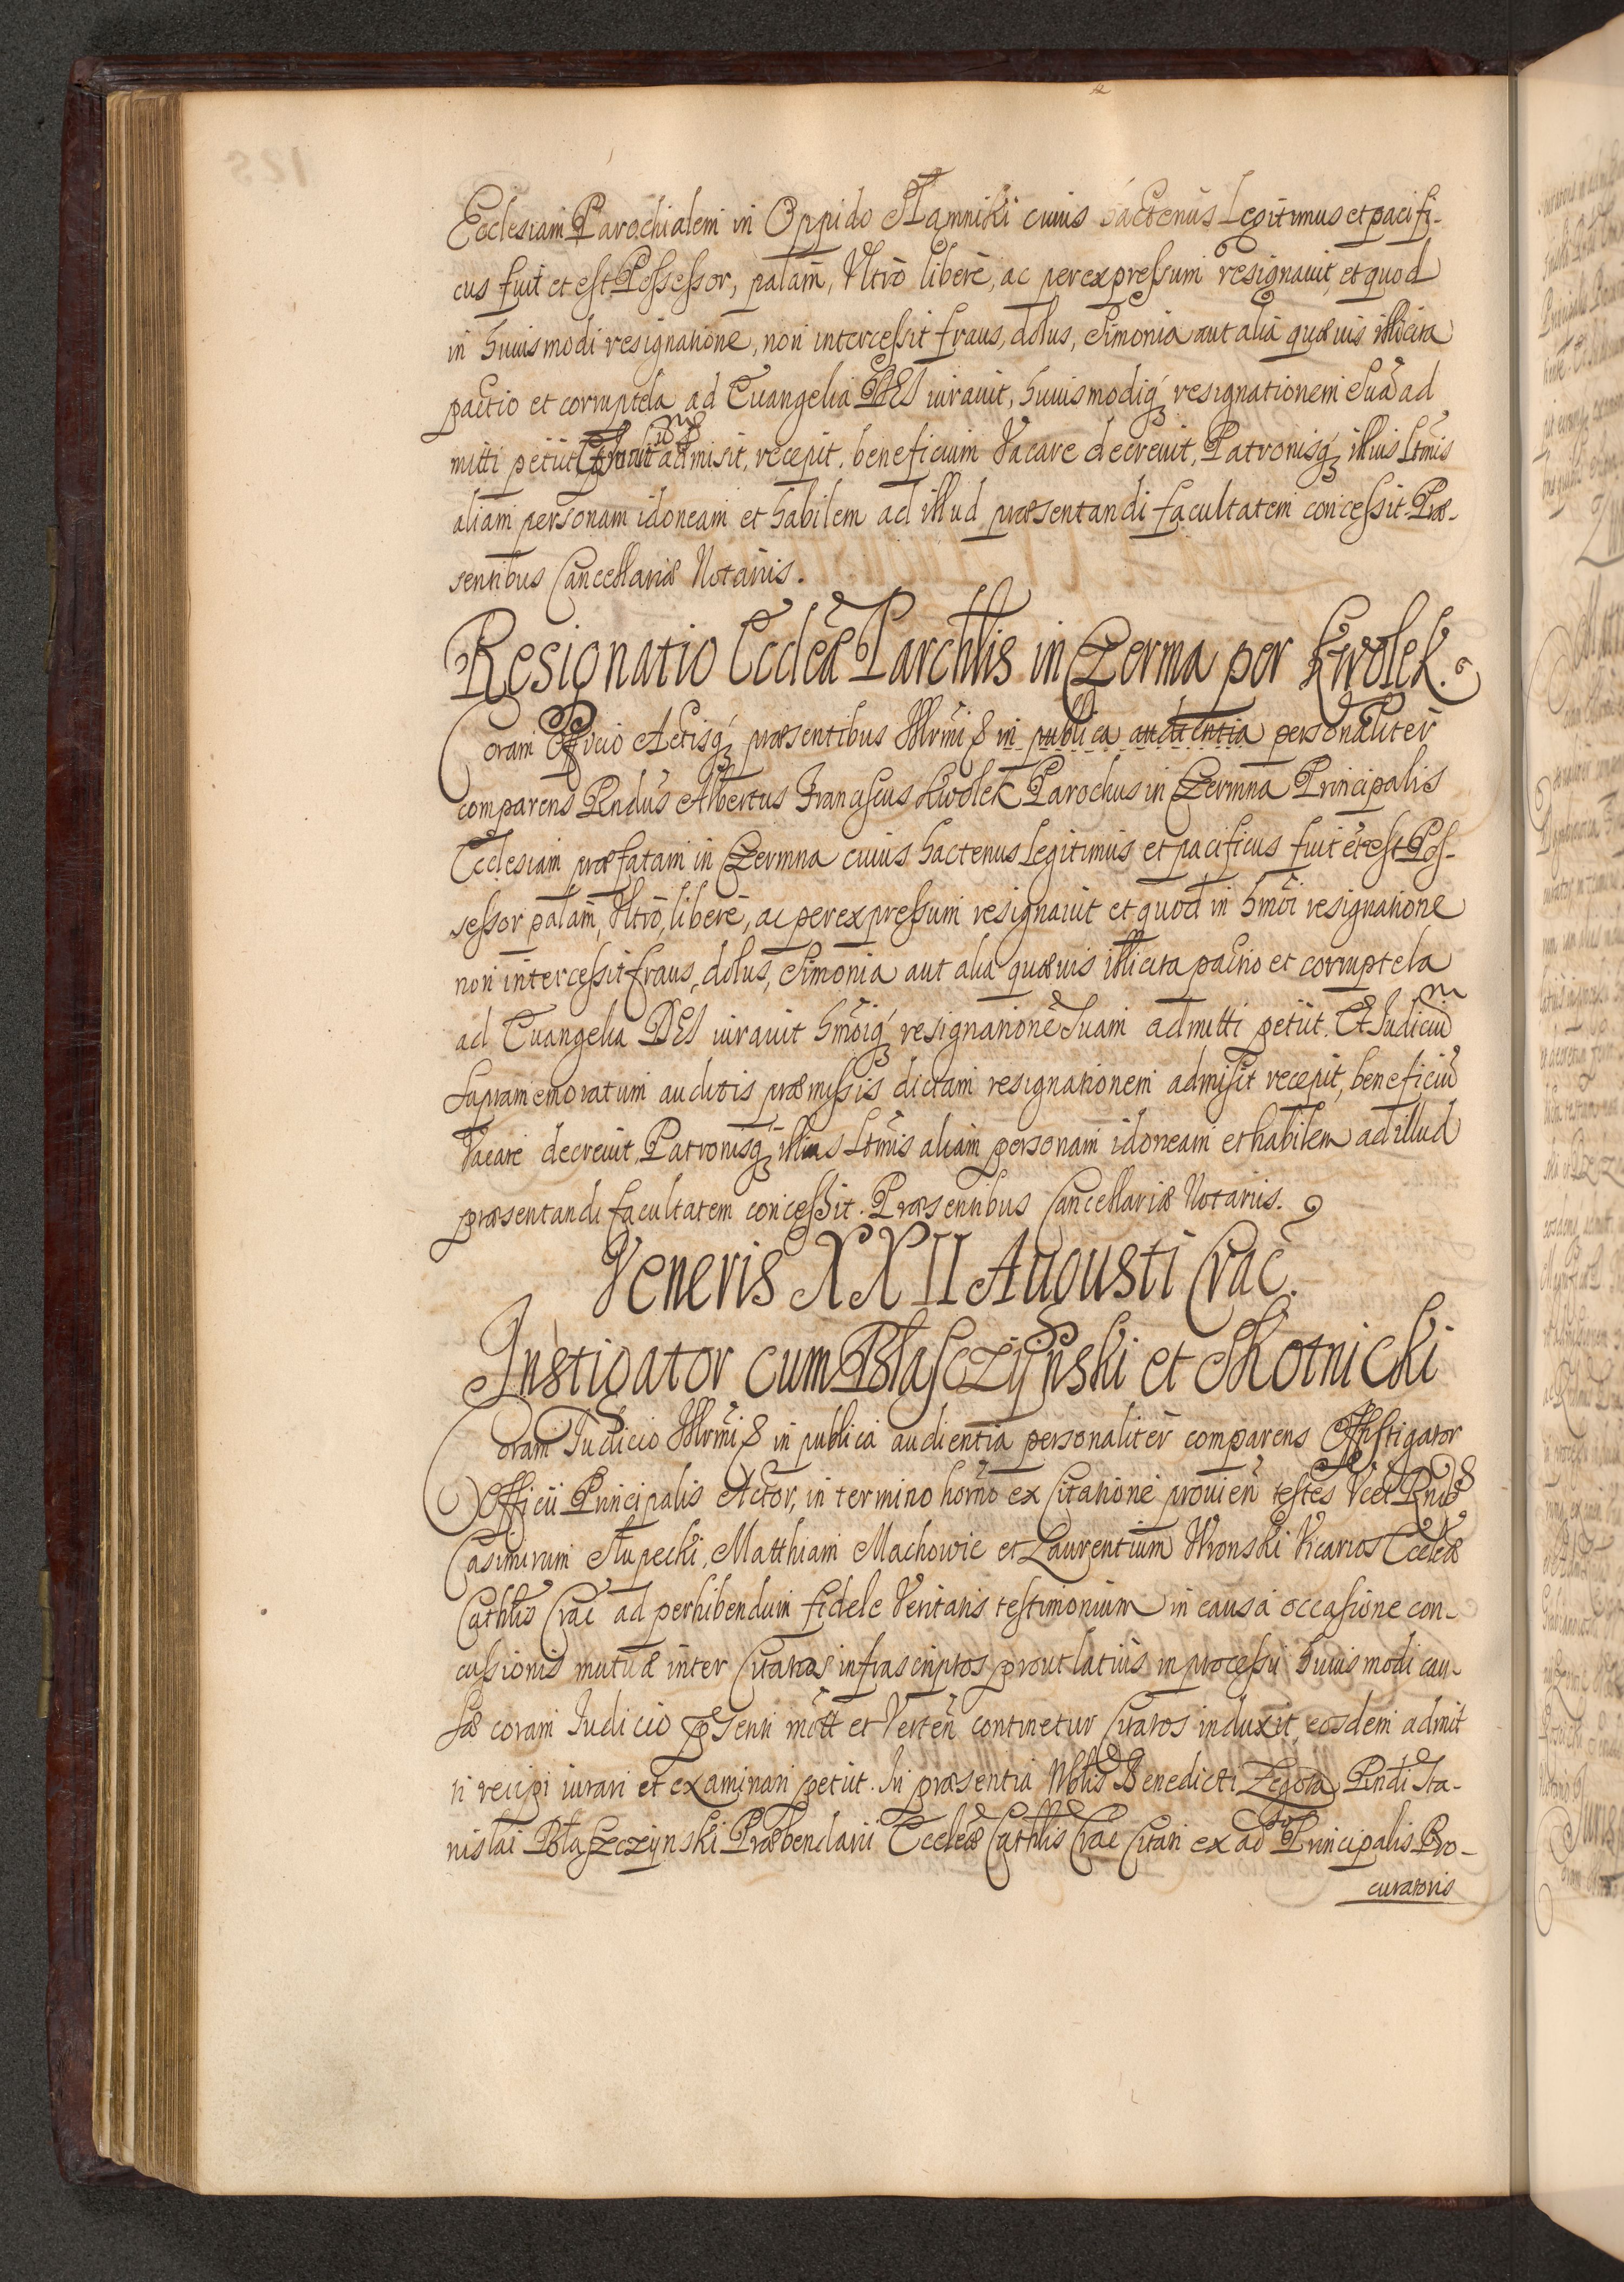 Ecclesiam Parochialem in Oppido Slamniki cuius hactenus Legitimus et pacifi-
cus fuit et est Possessor, palam, Ultro libere, ac per expressum resignauit, et quod
in huiusmodi resignatione, non intercessit fraus, dolus, Simonia aut alia quæuis illicita
pactio et corruptela ad Euangelia DEI iurauit, huiusmodiq; resignationem suã ad
mitti petiit admisit, recepit, beneficium Vacare decreuit, Patronisq; illius Ltmis
aliam personam idoneam et habilem ad illud præsentandi facultatem concessit. Præ-
sentibus Cancellariæ Notariis.
Resignatio Ecclæ Parchlis in Czerma per Kwolek.
Coram Officio Actisq; præsentibus Illrmi & in publica audientia personaliter
comparens Rndus Albertus Franciscus Kwolek Parochus in Czermna Principalis
Ecclesiam præfatam in Czermna cuius hactenus Legitimus et pacificus fuit et est Pos-
sessor palam, Ultro, libere, ac per expressum resignauit et quod in hmoi resignatione
non intercessit fraus, dolus, Simonia aut alia quæuis illicita pactio et corruptela
ad Euangelia DEI iurauit hmoiq; resignationẽ Suam admitti petiit. Et Iudiciũ
Supramemoratum auditis præmissis dictam resignationem admisit recepit, beneficiũ
Vacare decreuit, Patronisq; illius Ltmis aliam personam idoneam et habilem ad illud
præsentandi facultatem concessit. Præsentibus Cancellariæ Notariis.
Veneris XXII Augusti Crac.
Instigator cum Blasczyński et Skotnicki
Coram Iudicio Illrmi & in publica audientia personaliter comparens Instigator
Officii Principalis Actor, in termino horno ex Citatione prouien testes Vcet Rndos
Casimirum Słupecki, Matthiam Machowic et Laurentium Wronski Vicarios Eccleæ
Cathlis Crac ad perhibendum fidele Veritatis testimonium in causa occasione con-
cussionis mutuæ inter Citatos infrascriptos prout latius in processu huiusmodi cau-
sæ coram Iudicio psenti mott et Verten continetur Citatos induxit, eosdem admit
ti recipi iurari et examinari petiit. In præsentia Nblis Benedicti Zegota Rndi Sta-
nislai Błaszczynski Præbendarii Eccleæ Cathlis Crac Citati ex ad Principalis Pro-
curatoris